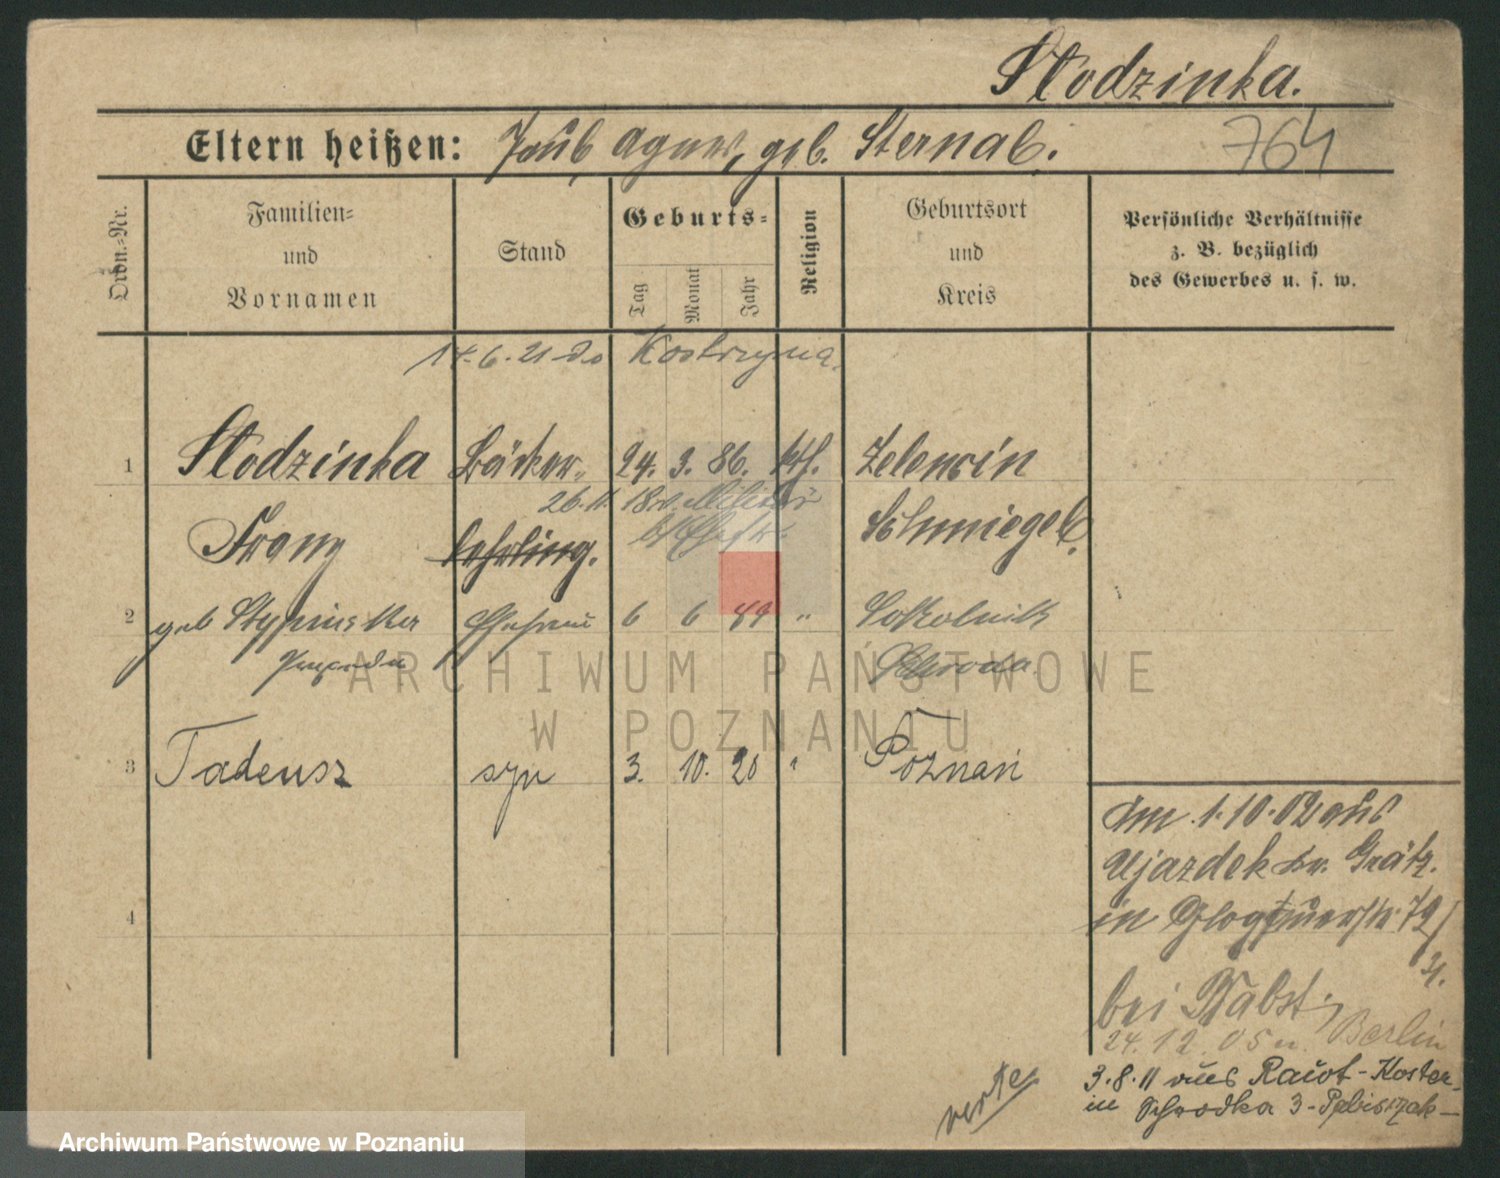 Stodzinka.
Eltern heißen: Jakub, Agnes, geb. Sternal.
764
Ordn.=Nr.
Familien=
und
Vornamen
Stand
Geburts=
Tag
Monat
Jahr
Religion
Geburtsort
und
Kreis
Persönliche Verhältnisse
z. B. bezüglich
des Gewerbes u. s. w.
14.6.21 do Kostrzyna
1 Stodzinka Bäcker 24. 3. 86. kth. Zelencin
26.11. Militär
Franz lehrling. Schmiegel.
2 geb Ehefrau 6 6 89 " Sokolnik
Schroda
3 Tadeusz syn 3. 10. 20 " Poznań
4
Am 1.10.02 aus
Ujazdek Kr. Grätz.
in
bei Pabst,
24.12.05 n. Berlin
3.8.11 aus Raiot-Koster
in Schrodka 3 - Pabiszak
verte
ARCHIWUM PAŃSTWOWE
W POZNANIU
Archiwum Państwowe w Poznaniu